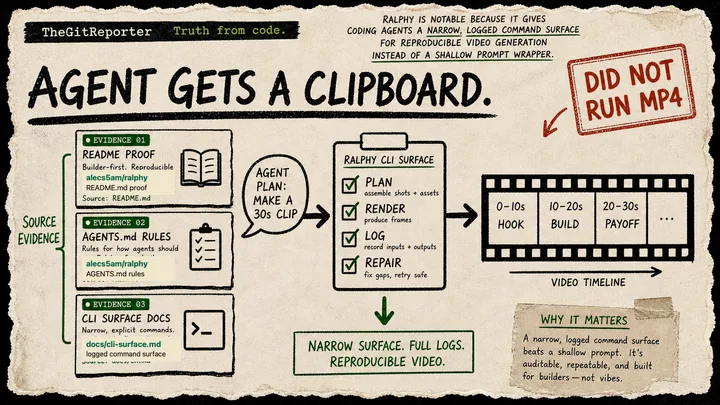 TheGitReporter Truth from code.
RALPHY IS NOTABLE BECAUSE IT GIVES
CODING AGENTS A NARROW, LOGGED COMMAND SURFACE
FOR REPRODUCIBLE VIDEO GENERATION
INSTEAD OF A SHALLOW PROMPT WRAPPER.
AGENT GETS A CLIPBOARD.
DID NOT
RUN MP4
SOURCE
EVIDENCE
EVIDENCE 01
README PROOF
Builder-first. Reproducible
alecs5am/ralphy
README.md proof
Source: README.md
EVIDENCE 02
AGENTS.md RULES
Rules for how agents should
alecs5am/ralphy
AGENTS.md rules
EVIDENCE 03
CLI SURFACE DOCS
Narrow, explicit commands.
docs/cli-surface.md
logged command surface
AGENT
PLAN:
MAKE A
30s CLIP
RALPHY CLI SURFACE
PLAN
assemble shots + assets
RENDER
produce frames
LOG
record inputs + outputs
REPAIR
fix gaps, retry safe
NARROW SURFACE. FULL LOGS.
REPRODUCIBLE VIDEO.
0-10s
HOOK
10-20s
BUILD
20-30s
PAYOFF
...
VIDEO TIMELINE
WHY IT MATTERS
A narrow, logged command surface
beats a shallow prompt. It's
auditable, repeatable, and built
for builders — not vibes.